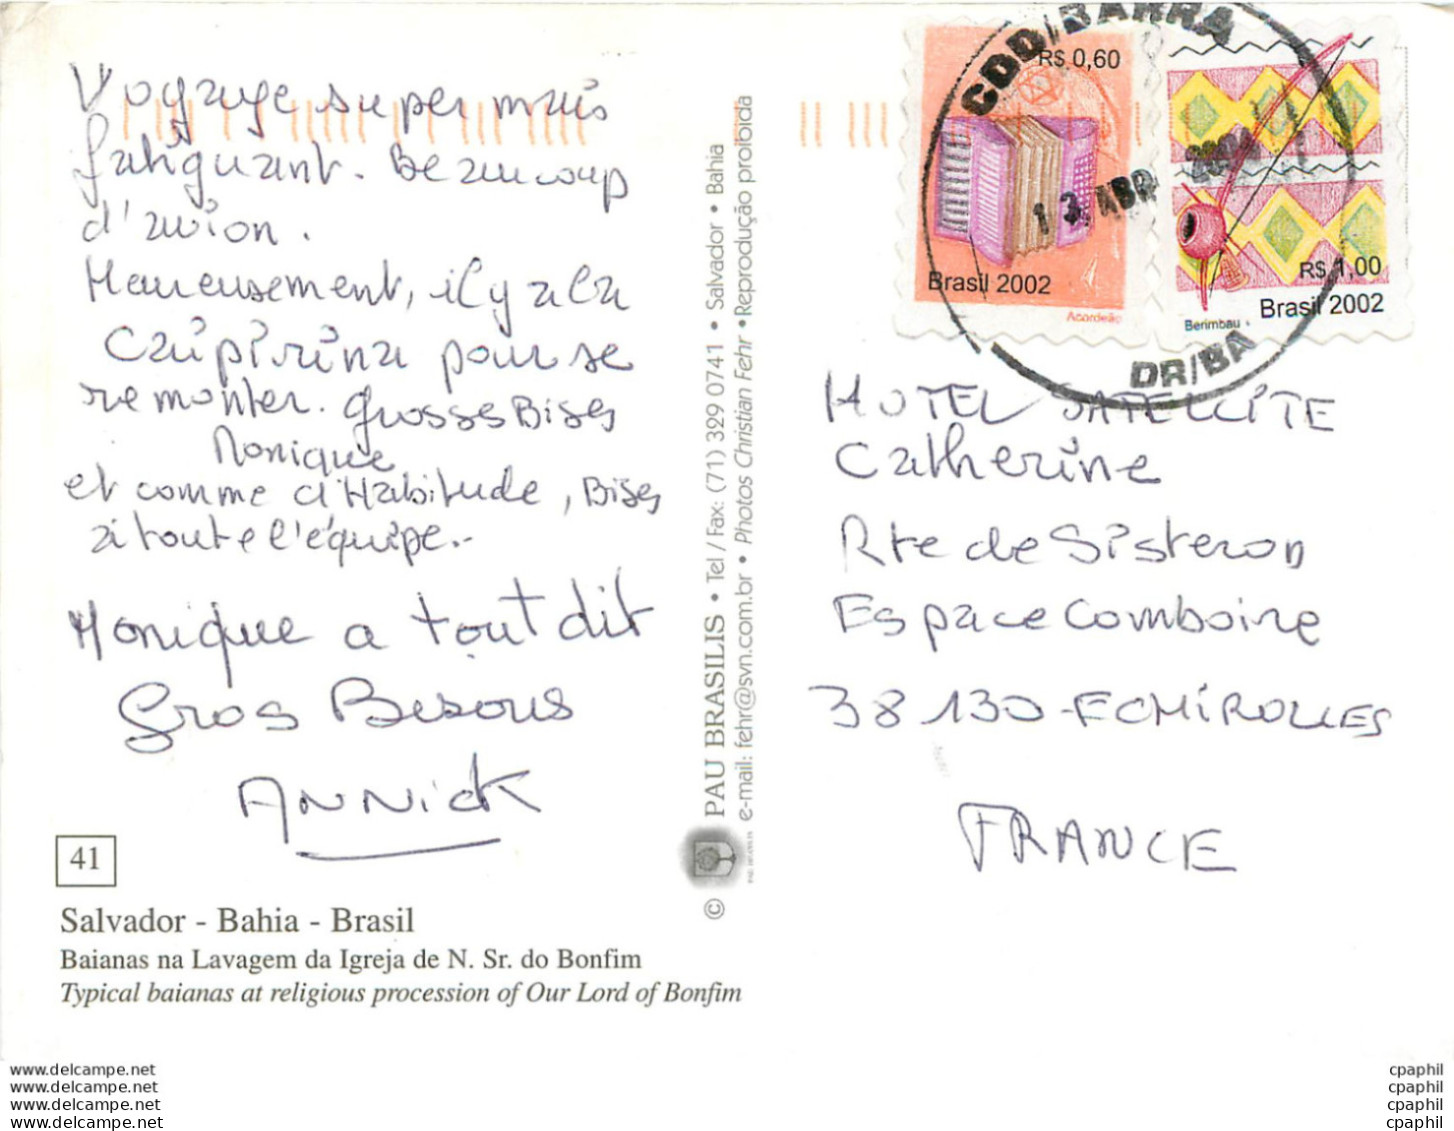 Voyage super mais
fatiguant. Beaucoup
d'avion.
Heureusement, il y a la
Caïpirina pour se
remonter. Grosses Bises
Monique
et comme d'Habitude, Bises
à toute l'équipe.-
Monique a tout dit
Gros Bisous
ANNick
41
Salvador - Bahia - Brasil
Baianas na Lavagem da Igreja de N. Sr. do Bonfim
Typical baianas at religious procession of Our Lord of Bonfim
© PAU BRASILIS • Tel / Fax: (71) 329 0741 • Salvador • Bahia
e-mail: fehr@svn.com.br • Photos Christian Fehr • Reprodução proibida
R$ 0,60
Brasil 2002
Acordeão
R$ 1,00
Brasil 2002
Berimbau
CDD/BARRA
13 ABR 2004
DR/BA
HOTEL SATELLITE
Catherine
Rte de Sisteron
Espace Comboire
38130-ECHIROLLES
FRANCE
www.delcampe.net
www.delcampe.net
www.delcampe.net
www.delcampe.net
cpaphil
cpaphil
cpaphil
cpaphil